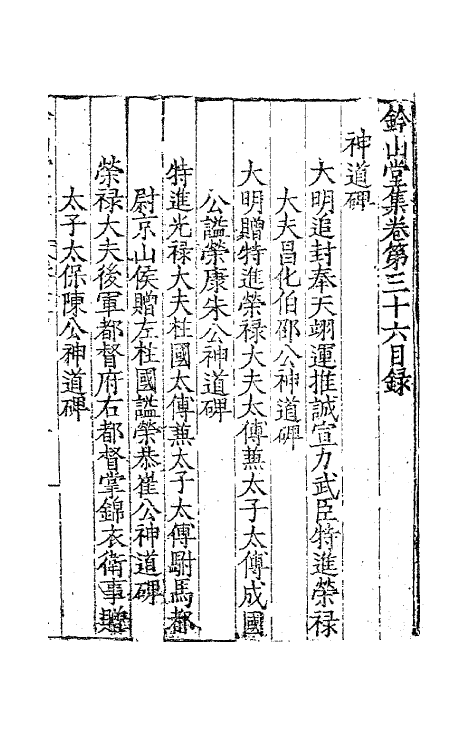 鈐山堂集卷第三十六目録
神道碑
大明追封奉天翊運推誠宣力武臣特進榮禄
大夫昌化伯邵公神道碑
大明贈特進榮禄大夫太傅兼太子太傅成國
公謚榮康朱公神道碑
特進光禄大夫柱國太傅兼太子太傅駙馬都
尉京山侯贈左柱國謚榮恭崔公神道碑
榮禄大夫後軍都督府右都督掌錦衣衛事贈
太子太保陳公神道碑